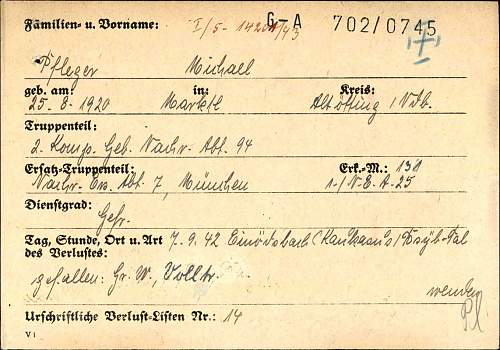 Familien- u. Vorname: I/5- G-A 702/0745
Pfleger Michael
geb. am: in: Kreis:
25.8.1920 Marktl Altötting / Ndb.
Truppenteil:
2. Komp. Geb. Nachr. Abt. 94
Ersatz-Truppenteil: Erk.-M.: 131
Nachr. Ers. Abt. 7, München -1-/N.E.A.-25
Dienstgrad:
Gefr.
Tag, Stunde, Ort u. Art 7.9.42 Einödsbach (Kaukasus)
des Verlustes:
gefallen: Gr. W., Volltr.
wenden
Urschriftliche Verlust-Listen Nr.: 14
V I